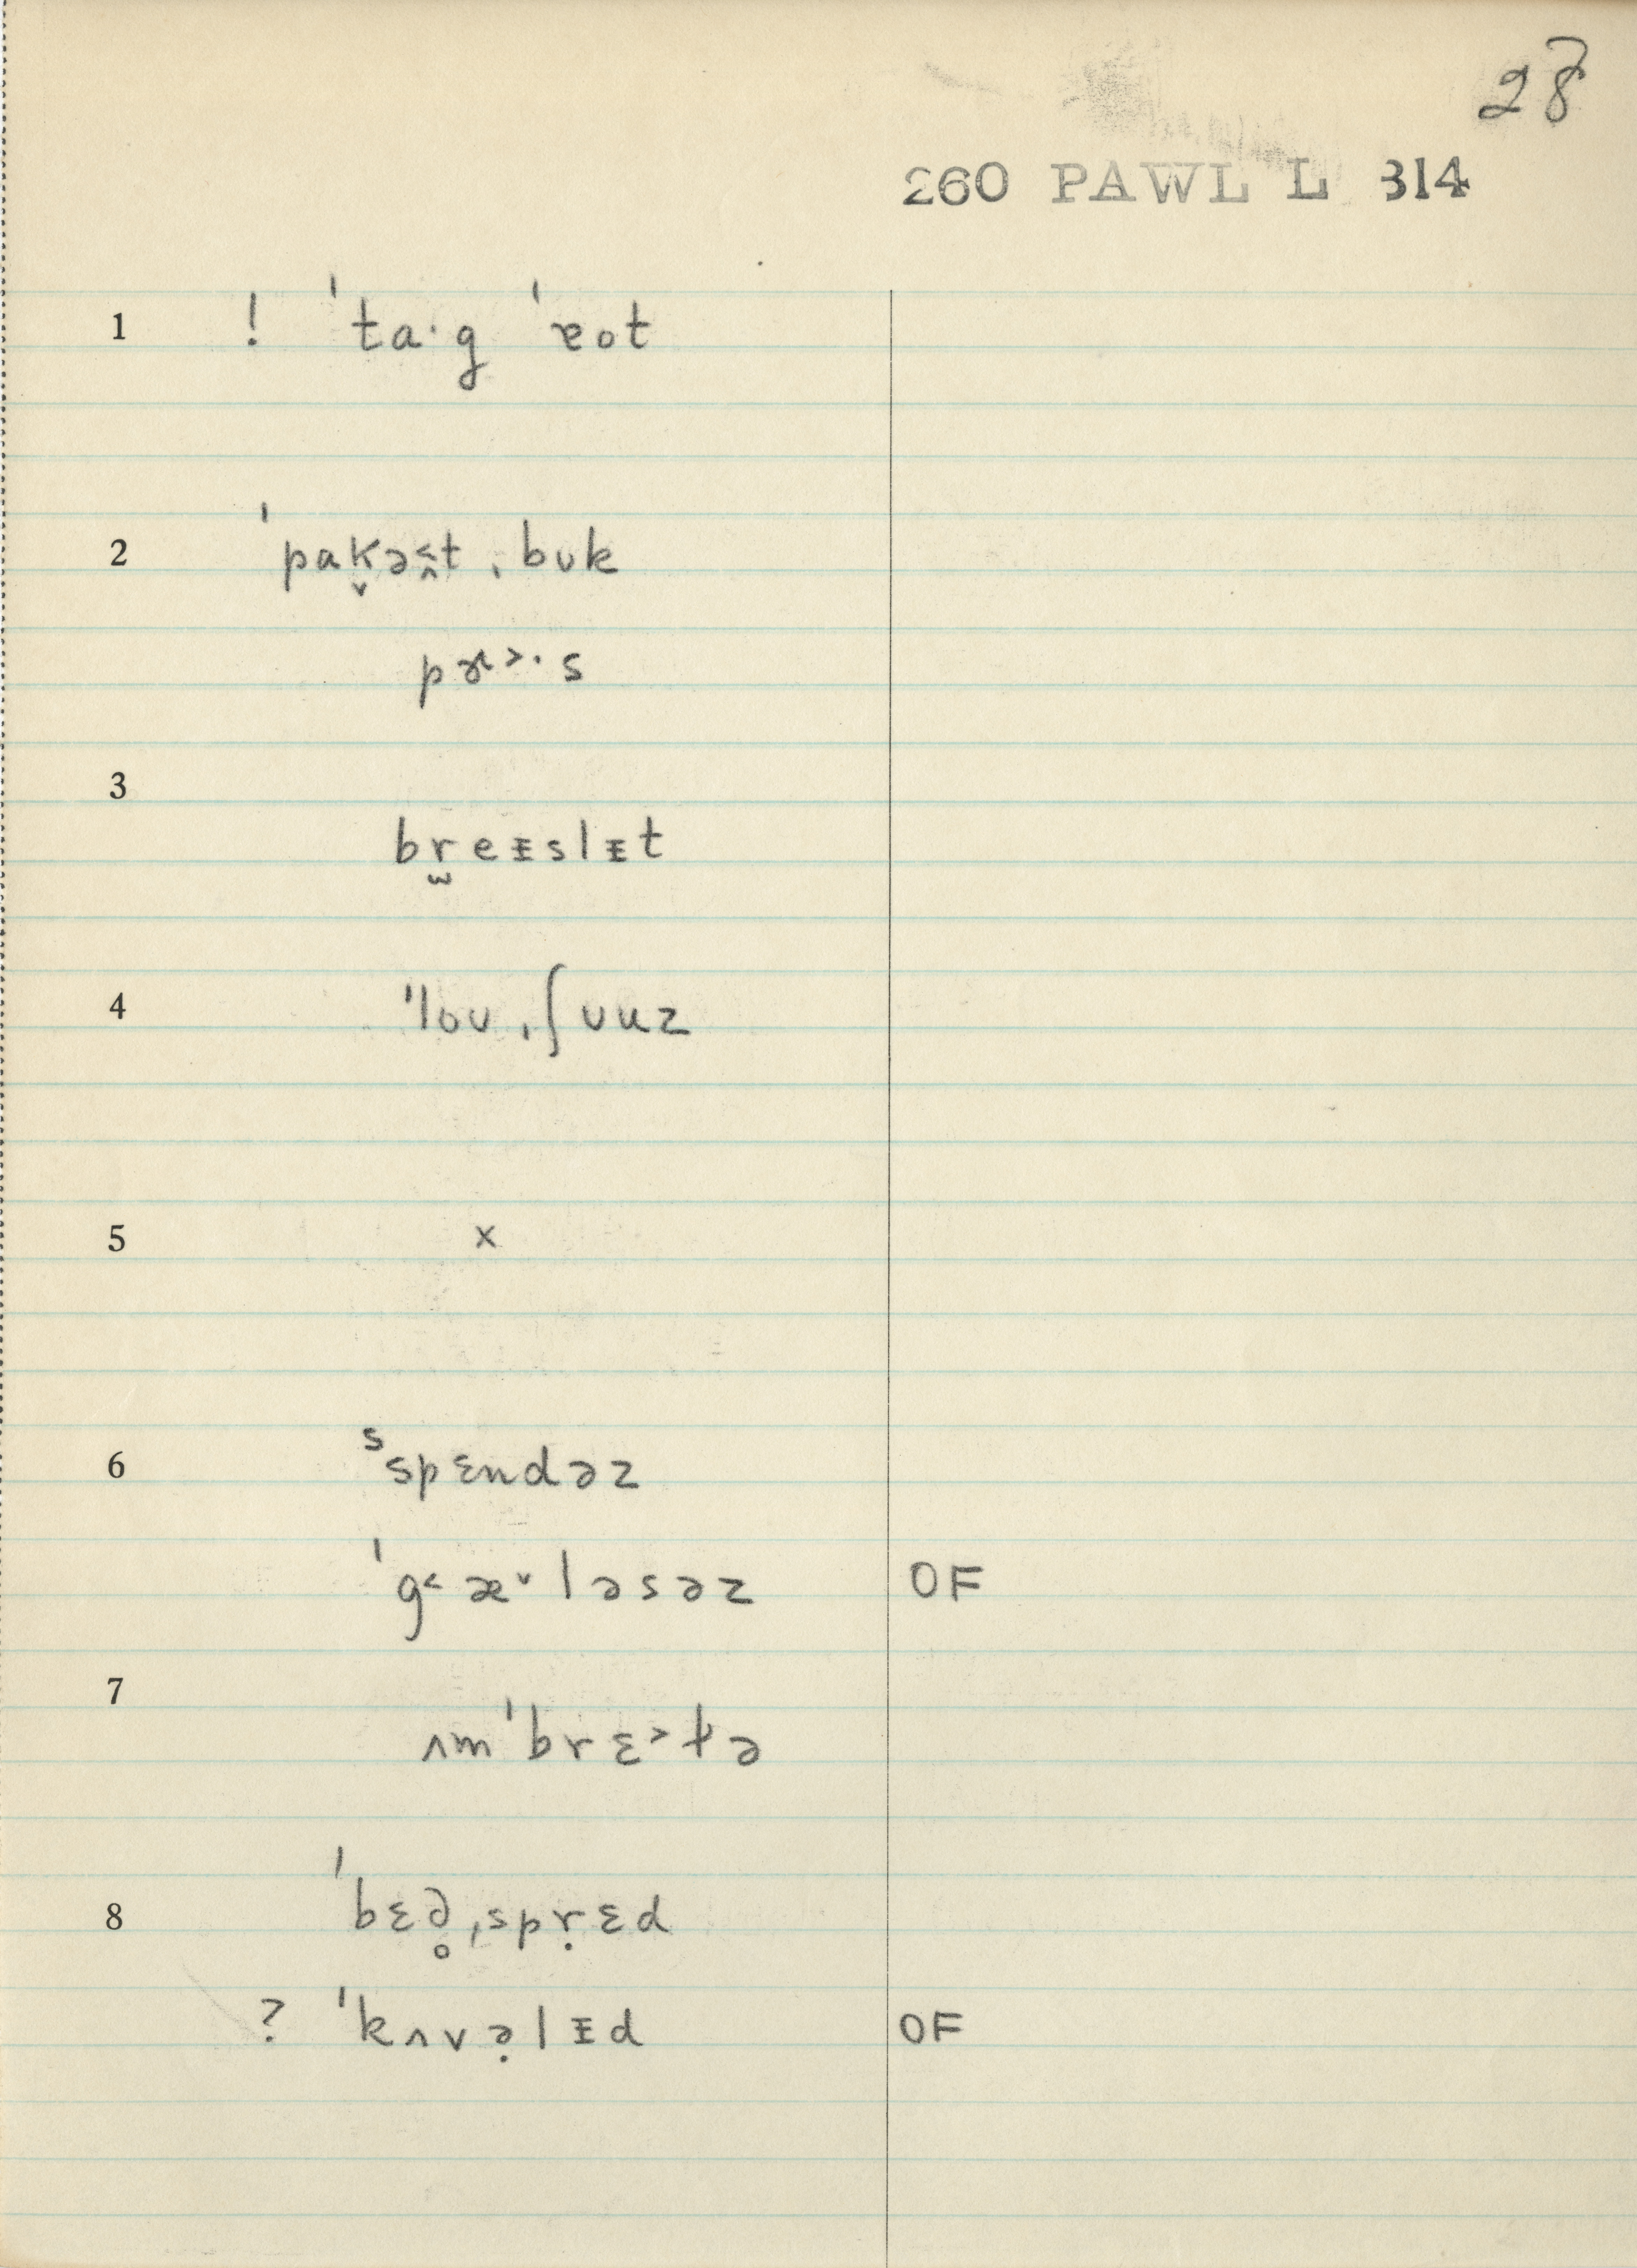 28
260 PAWL L 314
1 ! ˈtaˑg ˈɐot
2 ˈpak̬əs̭t ˌbʊk
pɚ˃ˑs
3 br̫eɪslɪt
4 ˈloʊ ˌʃʊuz
5 x
6 ˢspɛndəz
ˈg˂æ˅ləsəz OF
7 ʌmˈbrɛ˃ɫə
8 ˈbɛd̥ˌspṛɛd
? ˈkʌvə̣lɪd OF